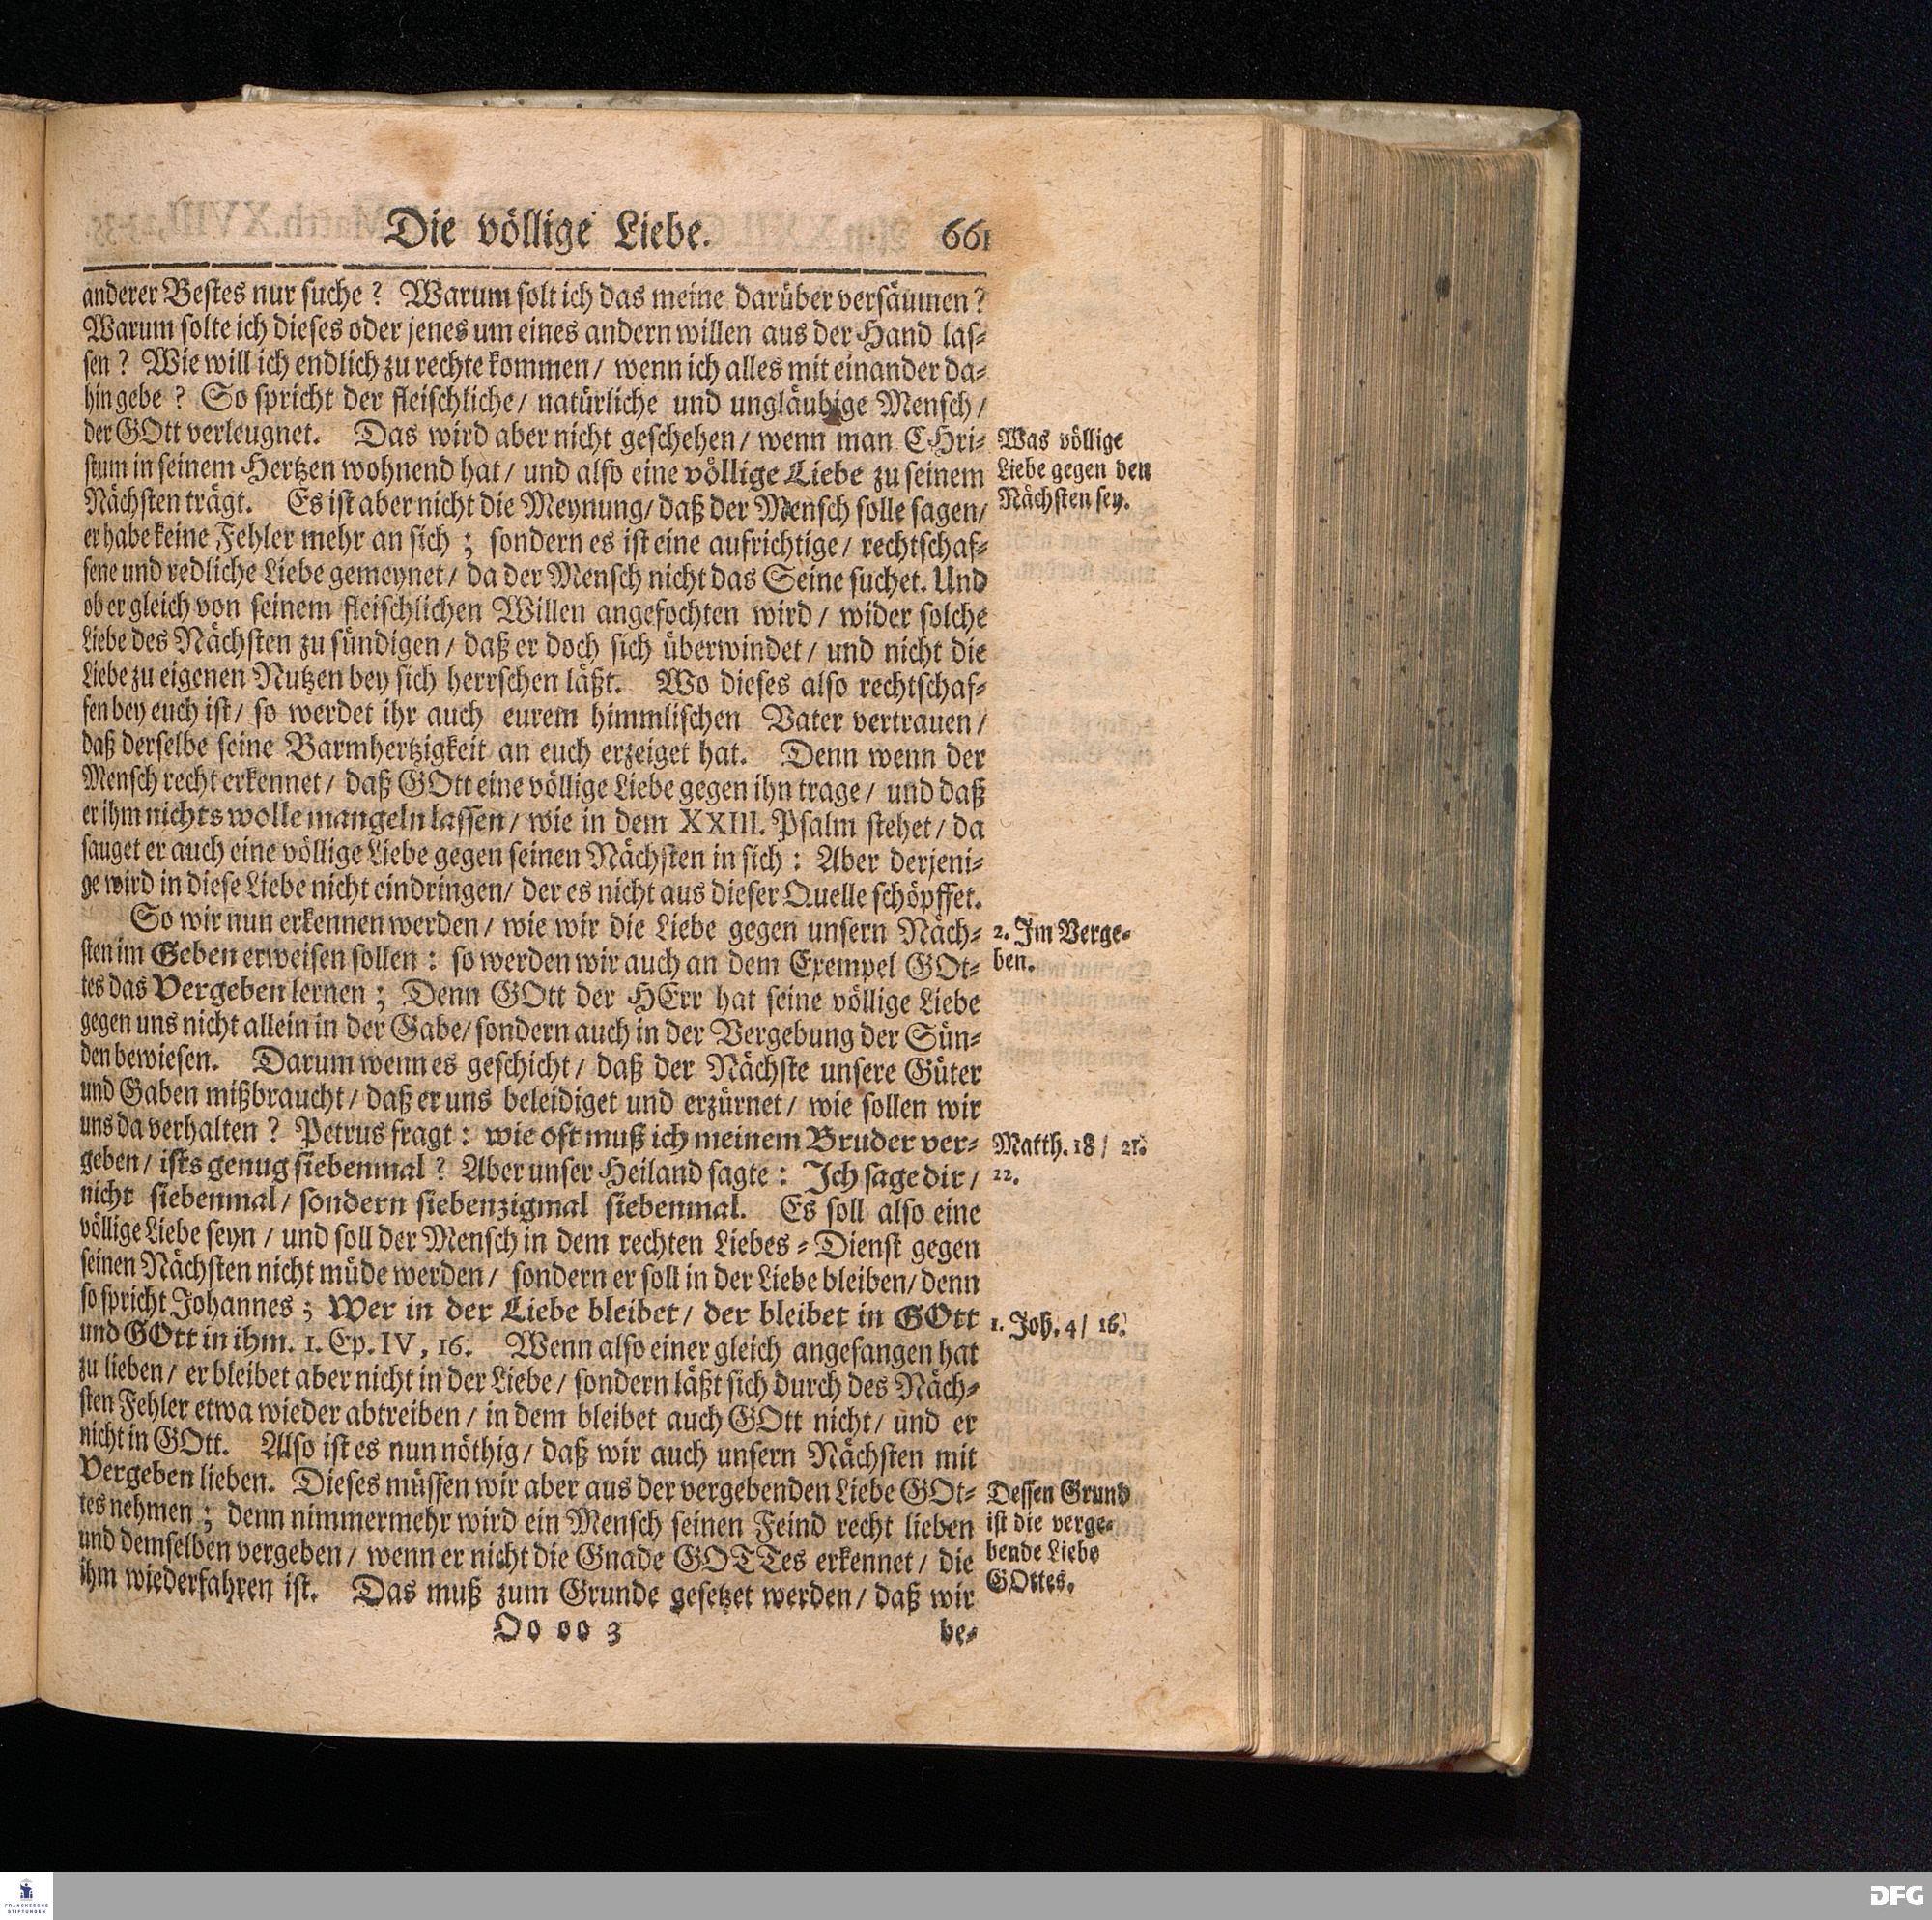 Die völlige Liebe. 661
anderer Bestes nur suche? Warum solt ich das meine darüber versäumen?
Warum solte ich dieses oder jenes um eines andern willen aus der Hand las-
sen? Wie will ich endlich zu rechte kommen/ wenn ich alles mit einander da-
hin gebe? So spricht der fleischliche/ natürliche und ungläubige Mensch/
der GOtt verleugnet. Das wird aber nicht geschehen/ wenn man CHri-
stum in seinem Hertzen wohnend hat/ und also eine völlige Liebe zu seinem
Nächsten trägt. Es ist aber nicht die Meynung/ daß der Mensch solle sagen/
er habe keine Fehler mehr an sich; sondern es ist eine aufrichtige/ rechtschaf-
fene und redliche Liebe gemeynet/ da der Mensch nicht das Seine suchet. Und
ob er gleich von seinem fleischlichen Willen angefochten wird/ wider solche
Liebe des Nächsten zu sündigen/ daß er doch sich überwindet/ und nicht die
Liebe zu eigenen Nutzen bey sich herrschen läßt. Wo dieses also rechtschaf-
fen bey euch ist/ so werdet ihr auch eurem himmlischen Vater vertrauen/
daß derselbe seine Barmhertzigkeit an euch erzeiget hat. Denn wenn der
Mensch recht erkennet/ daß GOtt eine völlige Liebe gegen ihn trage/ und daß
er ihm nichts wolle mangeln lassen/ wie in dem XXIII. Psalm stehet/ da
sauget er auch eine völlige Liebe gegen seinen Nächsten in sich: Aber derjeni-
ge wird in diese Liebe nicht eindringen/ der es nicht aus dieser Quelle schöpffet.
So wir nun erkennen werden/ wie wir die Liebe gegen unsern Näch-
sten im Geben erweisen sollen: so werden wir auch an dem Exempel GOt-
tes das Vergeben lernen; Denn GOtt der HErr hat seine völlige Liebe
gegen uns nicht allein in der Gabe/ sondern auch in der Vergebung der Sün-
den bewiesen. Darum wenn es geschicht/ daß der Nächste unsere Güter
und Gaben mißbraucht/ daß er uns beleidiget und erzürnet/ wie sollen wir
uns da verhalten? Petrus fragt: wie oft muß ich meinem Bruder ver-
geben/ ists genug siebenmal? Aber unser Heiland sagte: Ich sage dir/
nicht siebenmal/ sondern siebenzigmal siebenmal. Es soll also eine
völlige Liebe seyn/ und soll der Mensch in dem rechten Liebes-Dienst gegen
seinen Nächsten nicht müde werden/ sondern er soll in der Liebe bleiben/ denn
so spricht Johannes; Wer in der Liebe bleibet/ der bleibet in GOtt
und GOtt in ihm. 1. Ep. IV, 16. Wenn also einer gleich angefangen hat
zu lieben/ er bleibet aber nicht in der Liebe/ sondern läßt sich durch des Näch-
sten Fehler etwa wieder abtreiben/ in dem bleibet auch GOtt nicht/ und er
nicht in GOtt. Also ist es nun nöthig/ daß wir auch unsern Nächsten mit
Vergeben lieben. Dieses müssen wir aber aus der vergebenden Liebe GOt-
tes nehmen; denn nimmermehr wird ein Mensch seinen Feind recht lieben
und demselben vergeben/ wenn er nicht die Gnade GOTTes erkennet/ die
ihm wiederfahren ist. Das muß zum Grunde gesetzet werden/ daß wir
Oo oo 3 be-
Was völlige
Liebe gegen den
Nächsten sey.
2. Im Verge-
ben.
Matth. 18/ 21.
22.
1. Joh. 4/ 16.
Dessen Grund
ist die verge-
bende Liebe
GOttes.
FRANCKESCHE
STIFTUNGEN
DFG